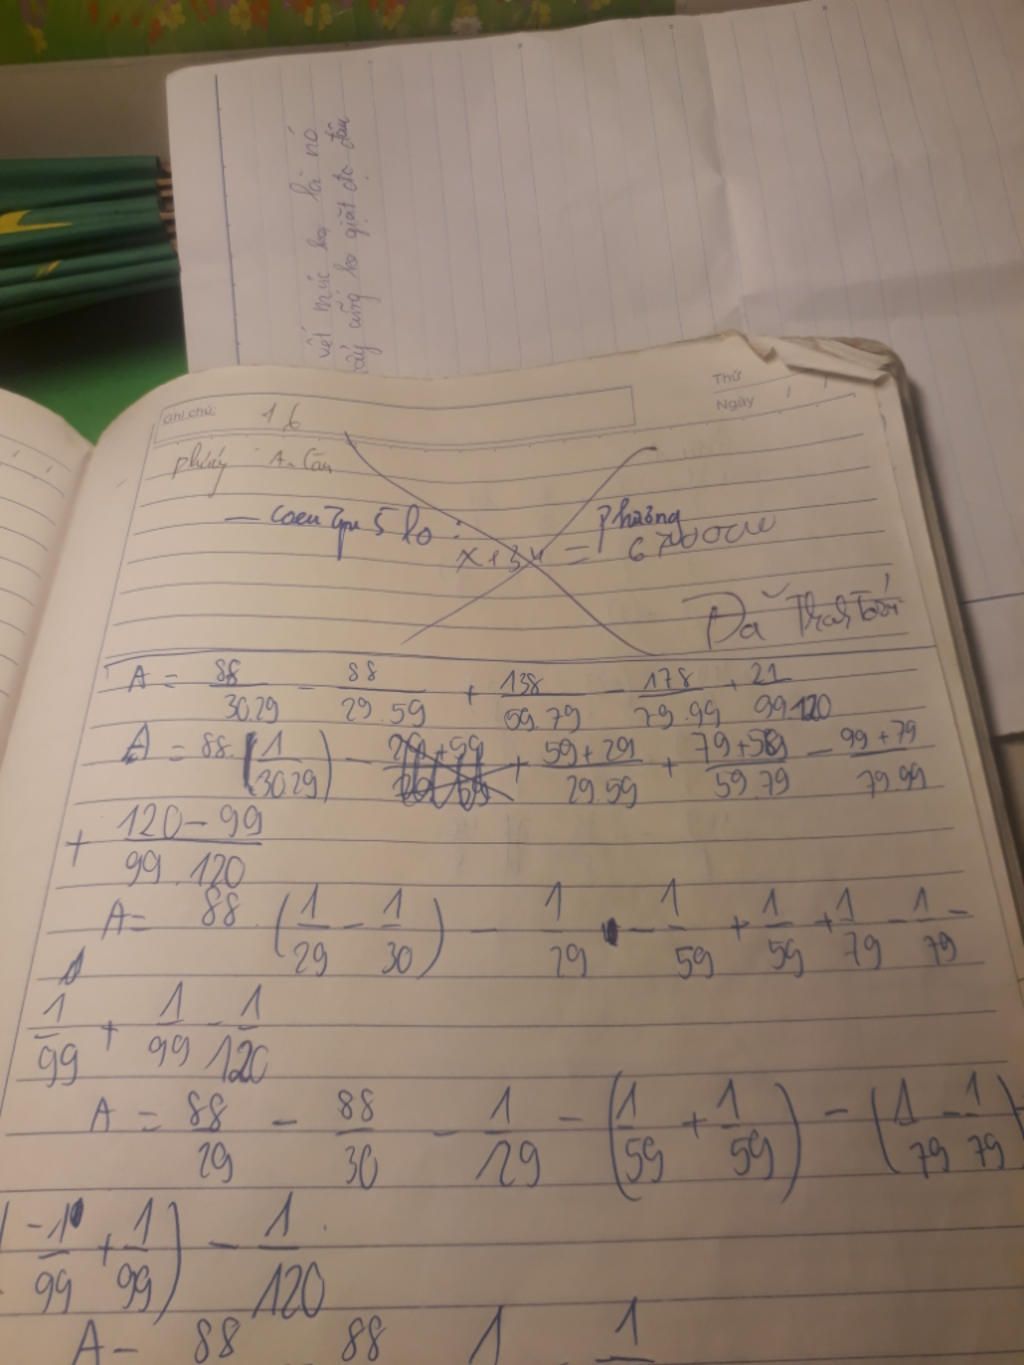 vết mực kia là nó
ấy cũng ko giặt đc đâu
Ghi chú: 16
Thứ
Ngày / /
x + 34 = phẳng
Đã Thanh Toán
A = 88/30.29 - 88/29.59 + 138/59.79 - 178/79.99 + 21/99.120
A = 88.(1/30.29) - 59+29/29.59 + 79+59/59.79 - 99+79/79.99
+ 120-99/99.120
A = 88.(1/29 - 1/30) - 1/29 - 1/59 + 1/59 + 1/79 - 1/79 -
1/99 + 1/99 - 1/120
A = 88/29 - 88/30 - 1/29 - (1/59 + 1/59) - (1/79 - 1/79)
(-1/99 + 1/99) - 1/120
A = 88 88 1 1